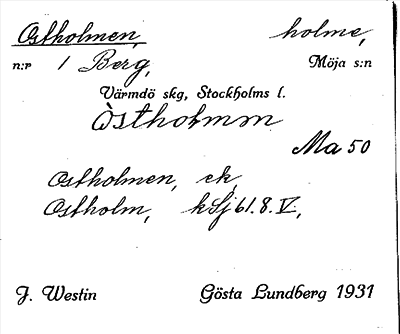 Ostholmen, holme,
n:r 1 Berg, Möja s:n
Värmdö skg, Stockholms l.
òstholmm
Ma 50
Ostholmen, ek,
Ostholm, kSj 61.8.V.,
J. Westin Gösta Lundberg 1931